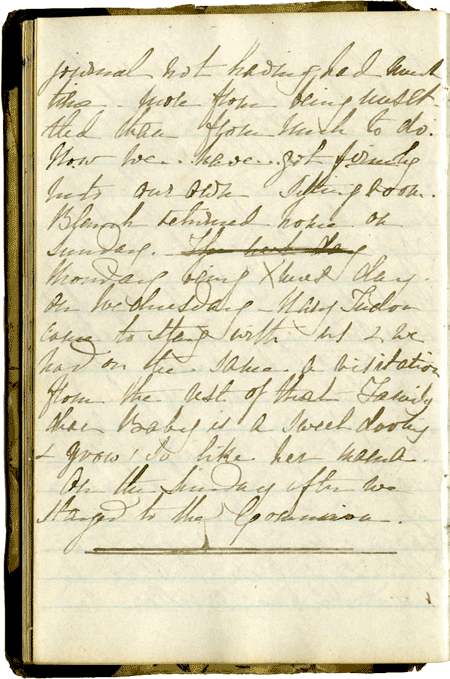 journal not having had much
time - more from being unsett
-tled than from much to do.
Now we have got fairly
into our own sitting room.
Blanch returned home on
Sunday. The next day
Monday being Xmas day.
On Wednesday - Mary Tudor
came to stay with us & we
had on the same a visitation
from the rest of that Family
dear Baby is a sweet
& grows so like her mama.
On the Sunday after we
stayed to the Communion.